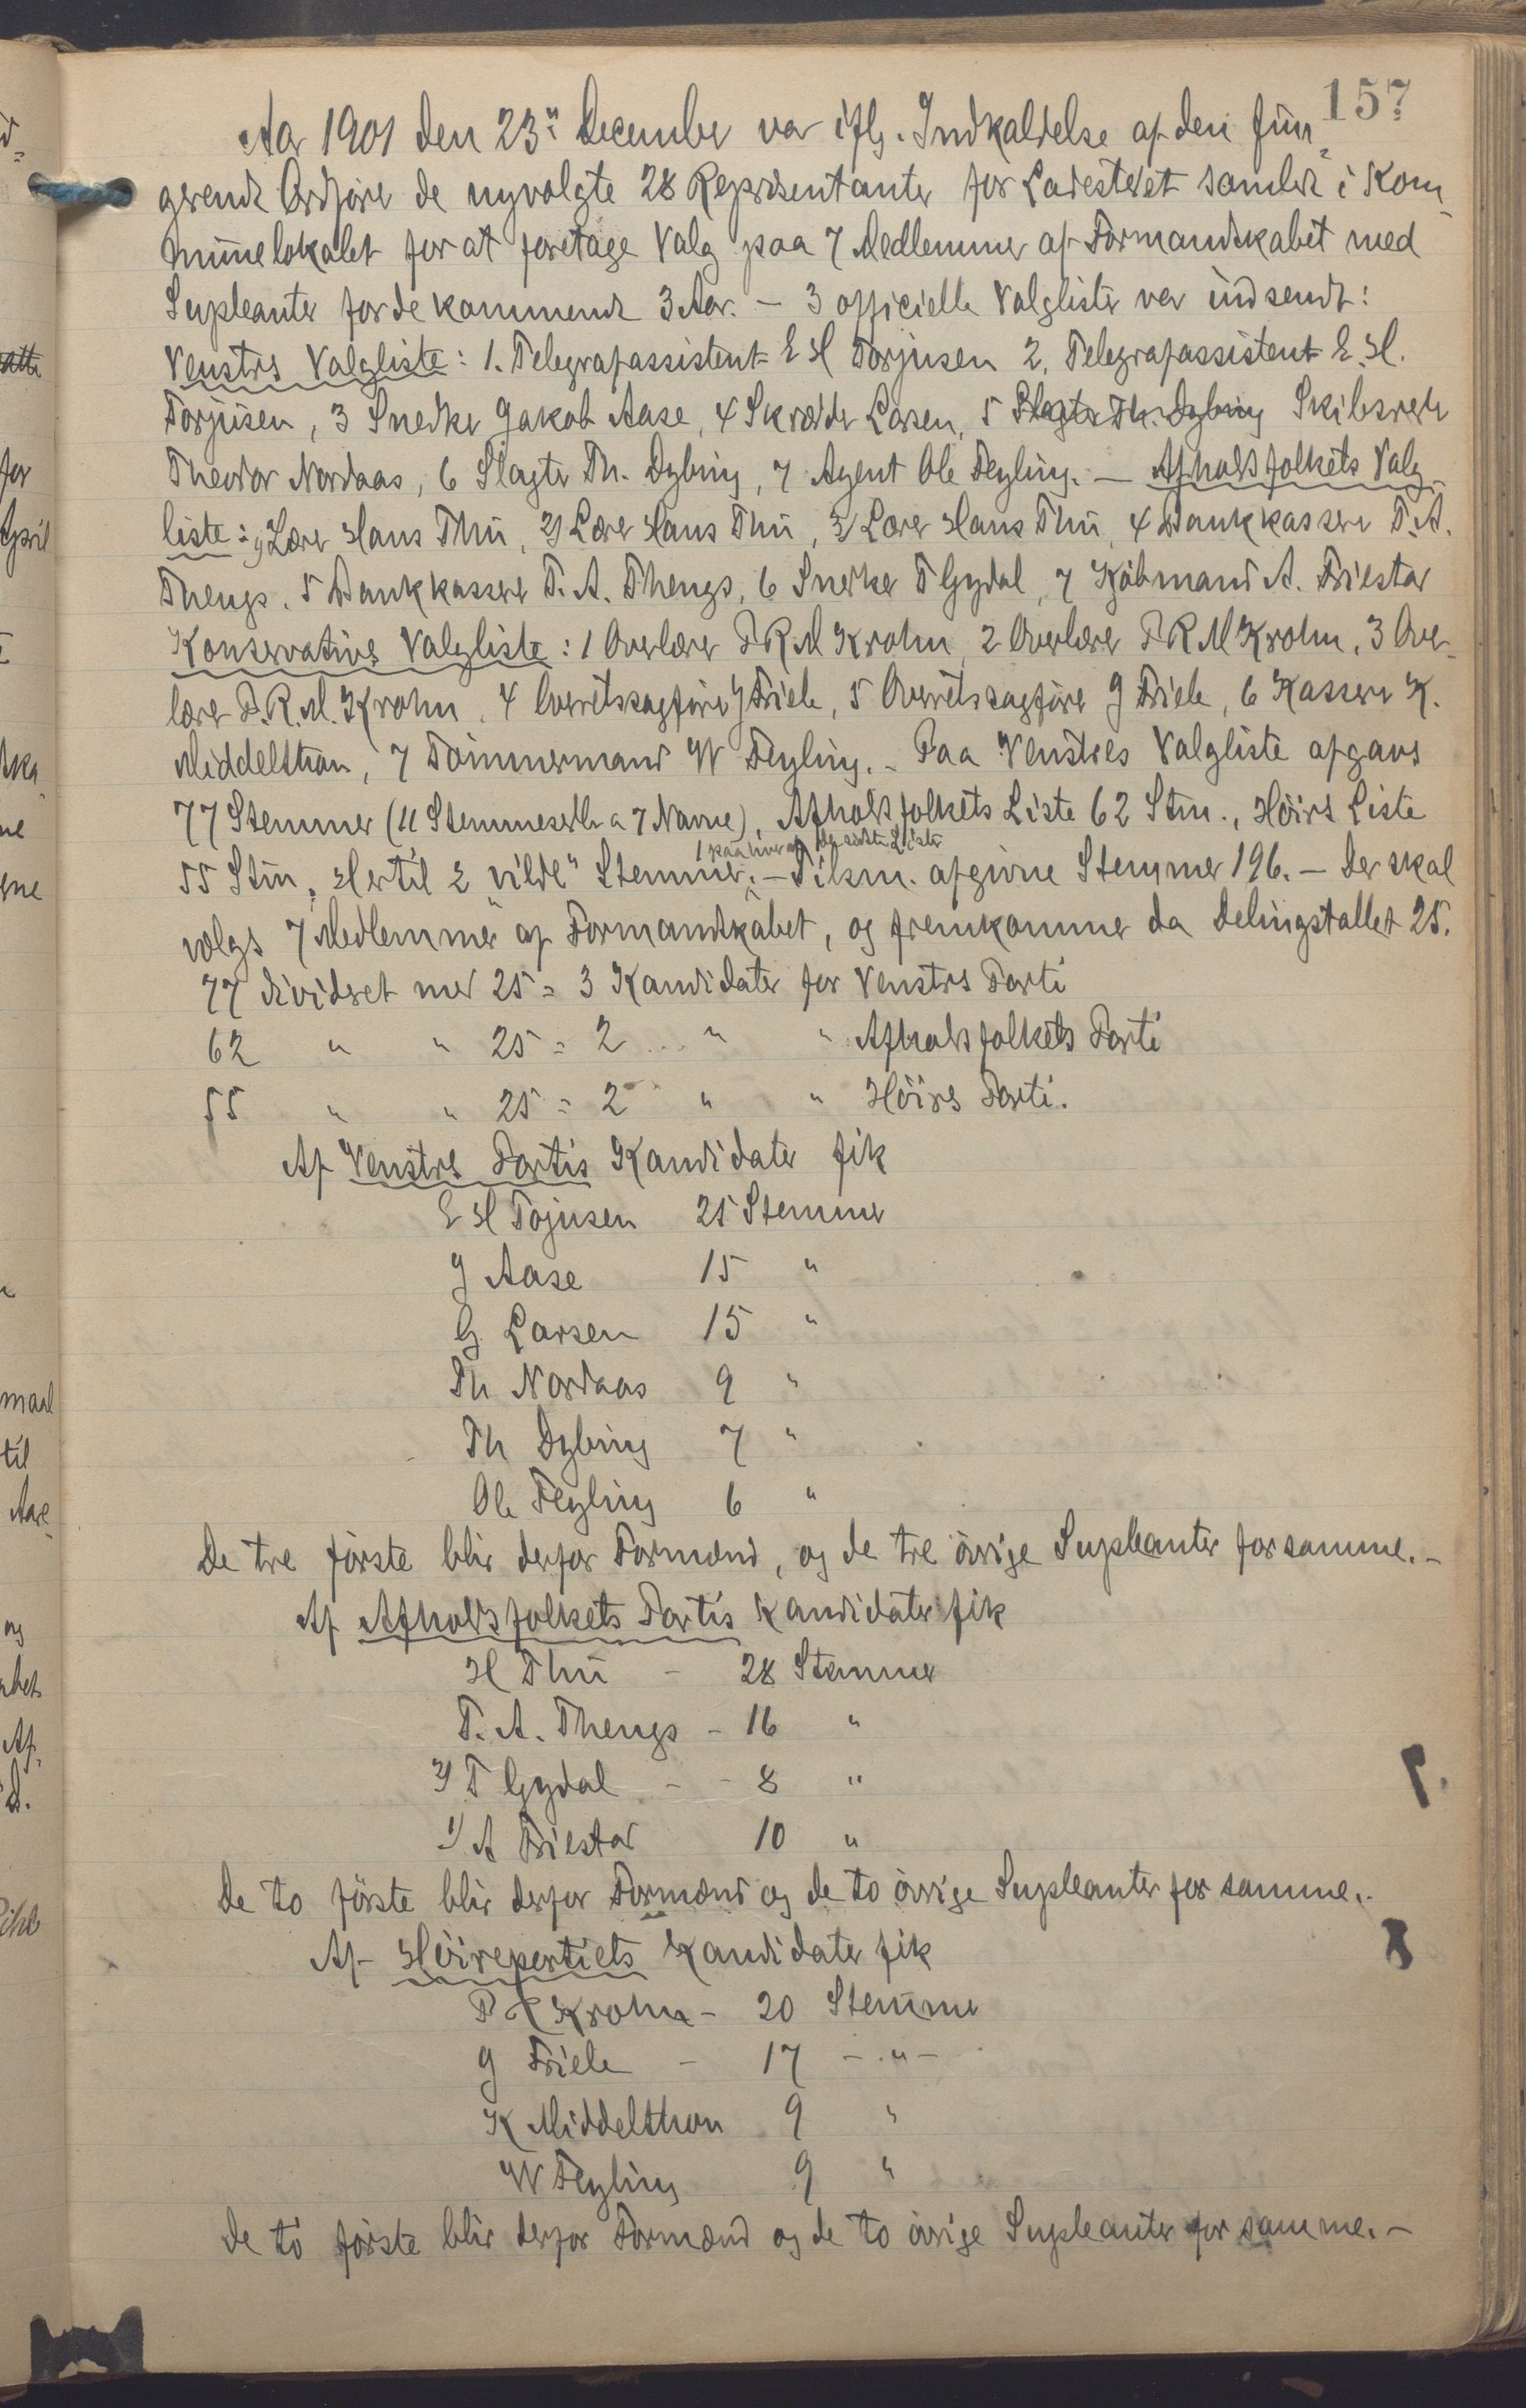 157
Aar 1901 den 23de December var iflg. Indkaldelse af den fun-
gerende Ordfører de nyvalgte 28 Repræsentanter for Ladestedet samlede i Kom-
munelokalet for at foretage Valg paa 7 Medlemmer af Formandskabet med
Supleanter for de kommende 3 Aar. – 3 officielle Valglister var indsendt:
Venstres Valgliste: 1. Telegrafassistent E H Torjusen 2, Telegrafassistent E. H.
Torjusen, 3 Snedker Jakob Aase, 4 Skræder Larsen, 5 Slagter Th. Dybing Skibsreder
Theodor Nordaas, 6 Slagter Th. Dybing, 7 Agent Ole Feyling. — Afholdsfolkets Valg-
liste: 1) Lærer Hans Thu, 2) Lærer Hans Thu, 3) Lærer Hans Thu, 4 Bankkasserer T. A.
Thengs, 5 Bankkasserer T. A. Thengs, 6 Snedker T Gydal, 7 Kjøbmand A. Friestad
Konservatives Valgliste: 1 Overlærer P R M Krohn, 2 Overlærer P R M Krohn, 3 Over-
lærer P. R. M. Krohn, 4 Overetssagfører J Friele, 5 Overetssagfører J Friele, 6 Kasserer K.
Middelthon, 7 Tømmermand W Feyling. – Paa Venstres Valgliste afgavs
77 Stemmer (11 Stemmesedler a 7 Navne), Afholdsfolkets Liste 62 Stm., Høires Liste
1 paa hver af de sidste Lister
55 Stm, Hertil 2 "vilde" Stemmer. – Tilsm. afgivne Stemmer 196. – Der skal
vælges 7 Medlemmer af Formandskabet, og fremkommer da Delingstallet 25.
77 divideret med 25 = 3 Kandidater for Venstres Parti
62 " " 25 = 2 " " Afholdsfolkets Parti
55 " " 25 = 2 " " Høires Parti.
Af Venstre Partis Kandidater fik
E H Tojusen 25 Stemmer
J Aase 15 "
G Larsen 15 "
Th Nordaas 9 "
Th Dybing 7 "
Ole Feyling 6 "
De tre første blir derfor Formænd, og de tre øvrige Supleanter for samme. –
Af Afholdsfolkets Partis Kandidater fik
H Thu – 28 Stemmer
T. A. Thengs – 16 "
2) T Gydal – – 8 "
1) A Friestad 10 "
De to første blir derfor Formænd og de to øvrige Supleanter for samme.
Af Høirepartiets Kandidater fik
P R Krohn – 20 Stemmer
J Friele – 17 – " –
K Middelthon 9 "
W Feyling 9 "
De to første blir derfor Formænd og de to øvrige Supleanter for samme. –